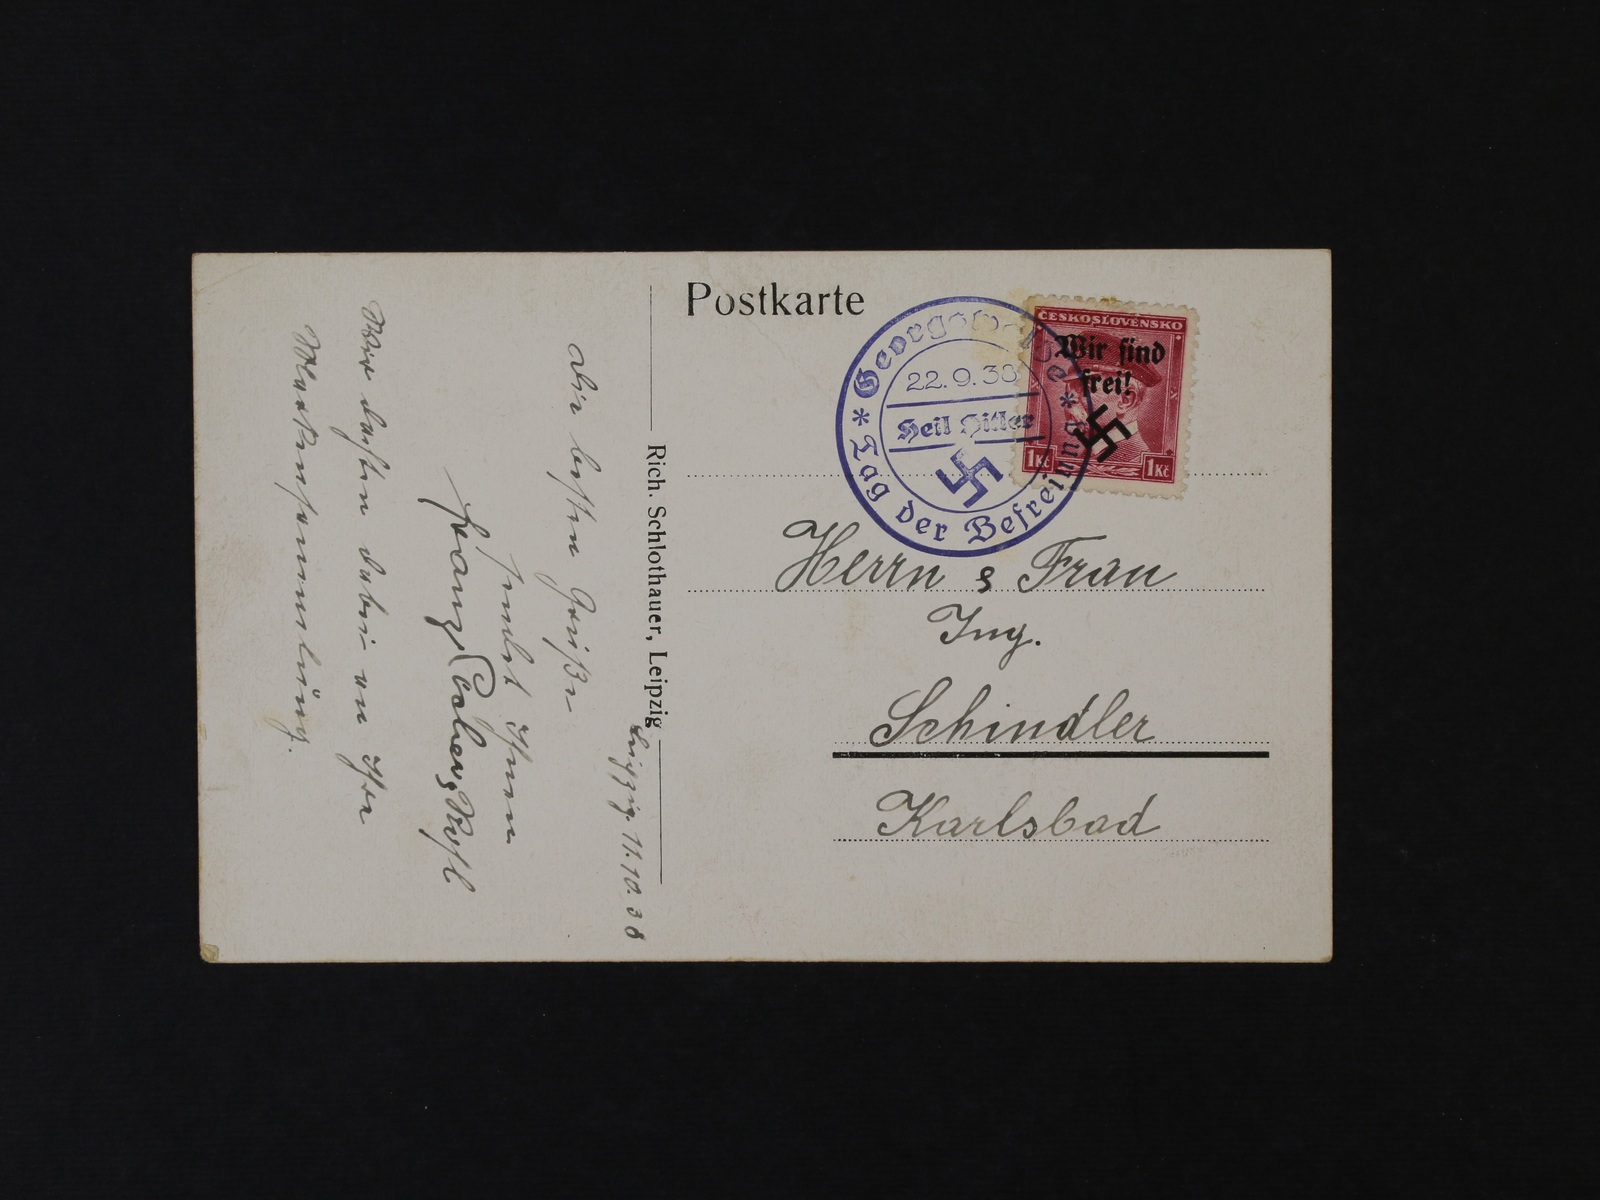 Postkarte
Georgswalde
22.9.38
Heil Hitler
* Tag der Befreiung *
ČESKOSLOVENSKO
Wir sind
frei!
1Kč 1Kč
Herrn & Frau
Ing.
Schindler
Karlsbad
Rich. Schlothauer, Leipzig
Leipzig. 11.10.38
Die besten Grüße
sendet Ihnen
Franz
Wir dachten dabei an Ihre
Markensammlung.